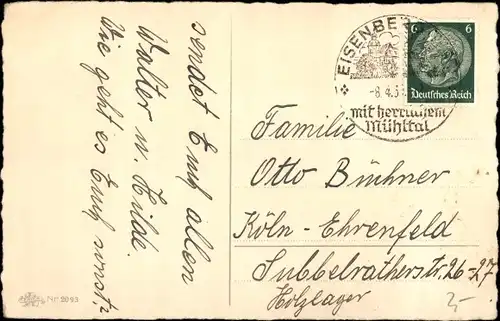 sendet Euch allen
Walter u. Hilde.
Wie geht es Euch sonst?
EISENBERG
-8.4.3
mit herrlichem
Mühltal
6 6
Deutsches Reich
Familie
Otto Büchner
Köln-Ehrenfeld
Subbelratherstr. 26-27
Holzlager
Nr. 2093
2,-